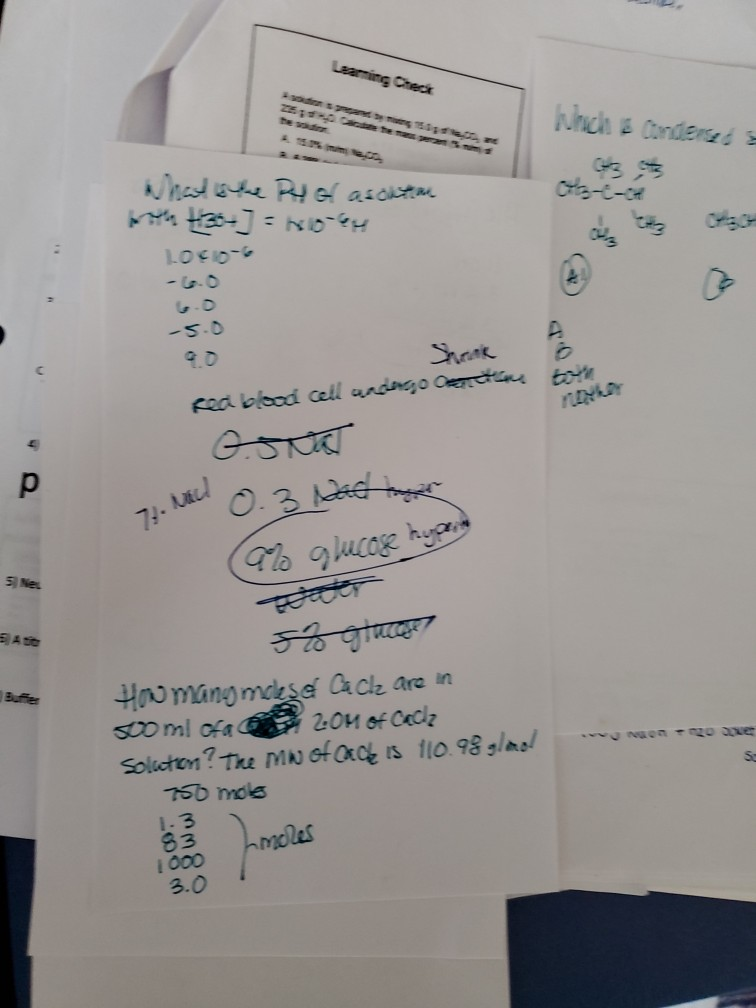 Learning Check
A solution is prepared by mixing 15.0 g of Na2CO3 and
235 g of H2O. Calculate the mass percent (% m/m) of
the solution.
A. 15.0% (m/m) Na2CO3
What is the PH of a solution
with [H30+] = 1x10-6M
1.0x10-6
-6.0
6.0
-5.0
9.0
Shrink
Red blood cell undergo
0.5 NaCl
7%. NaCl
0.3 NaCl hyper
9% glucose
water
5% glucose
How many moles of CaCl2 are in
500 ml of a 2.0M of CaCl2
Solution? The MW of CaCl2 is 110.98 g/mol
750 moles
1.3
83
1000
3.0
moles
Which is condensed
CH3 CH3
CH3-C-CH
CH3 CH3
CH3CH
A
B
both
neither
4)
p
5) Neu
A titr
Buffer